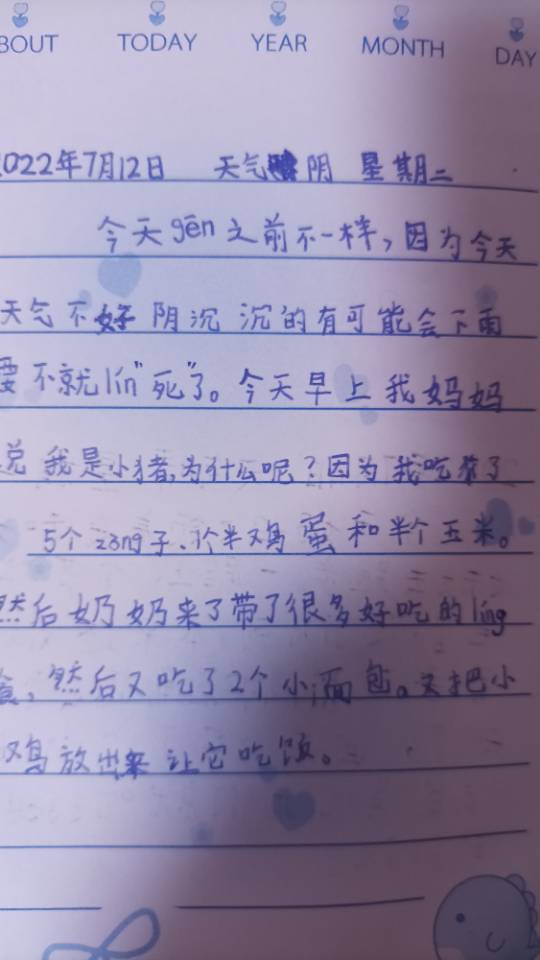 BOUT TODAY YEAR MONTH DAY
2022年7月12日 天气 阴 星期二
今天gēn之前不一样,因为今天
天气不好阴沉沉的有可能会下雨
要不就lín"死"了。今天早上我妈妈
说我是小猪,为什么呢?因为我吃了
5个zòng子、1个半鸡蛋和半个玉米。
然后奶奶来了带了很多好吃的líng
食,然后又吃了2个小面包。又把小
鸡放出来让它吃饭。